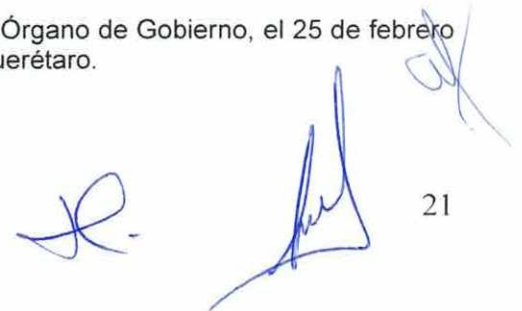 Órgano de Gobierno, el 25 de febrero
uerétaro.
21